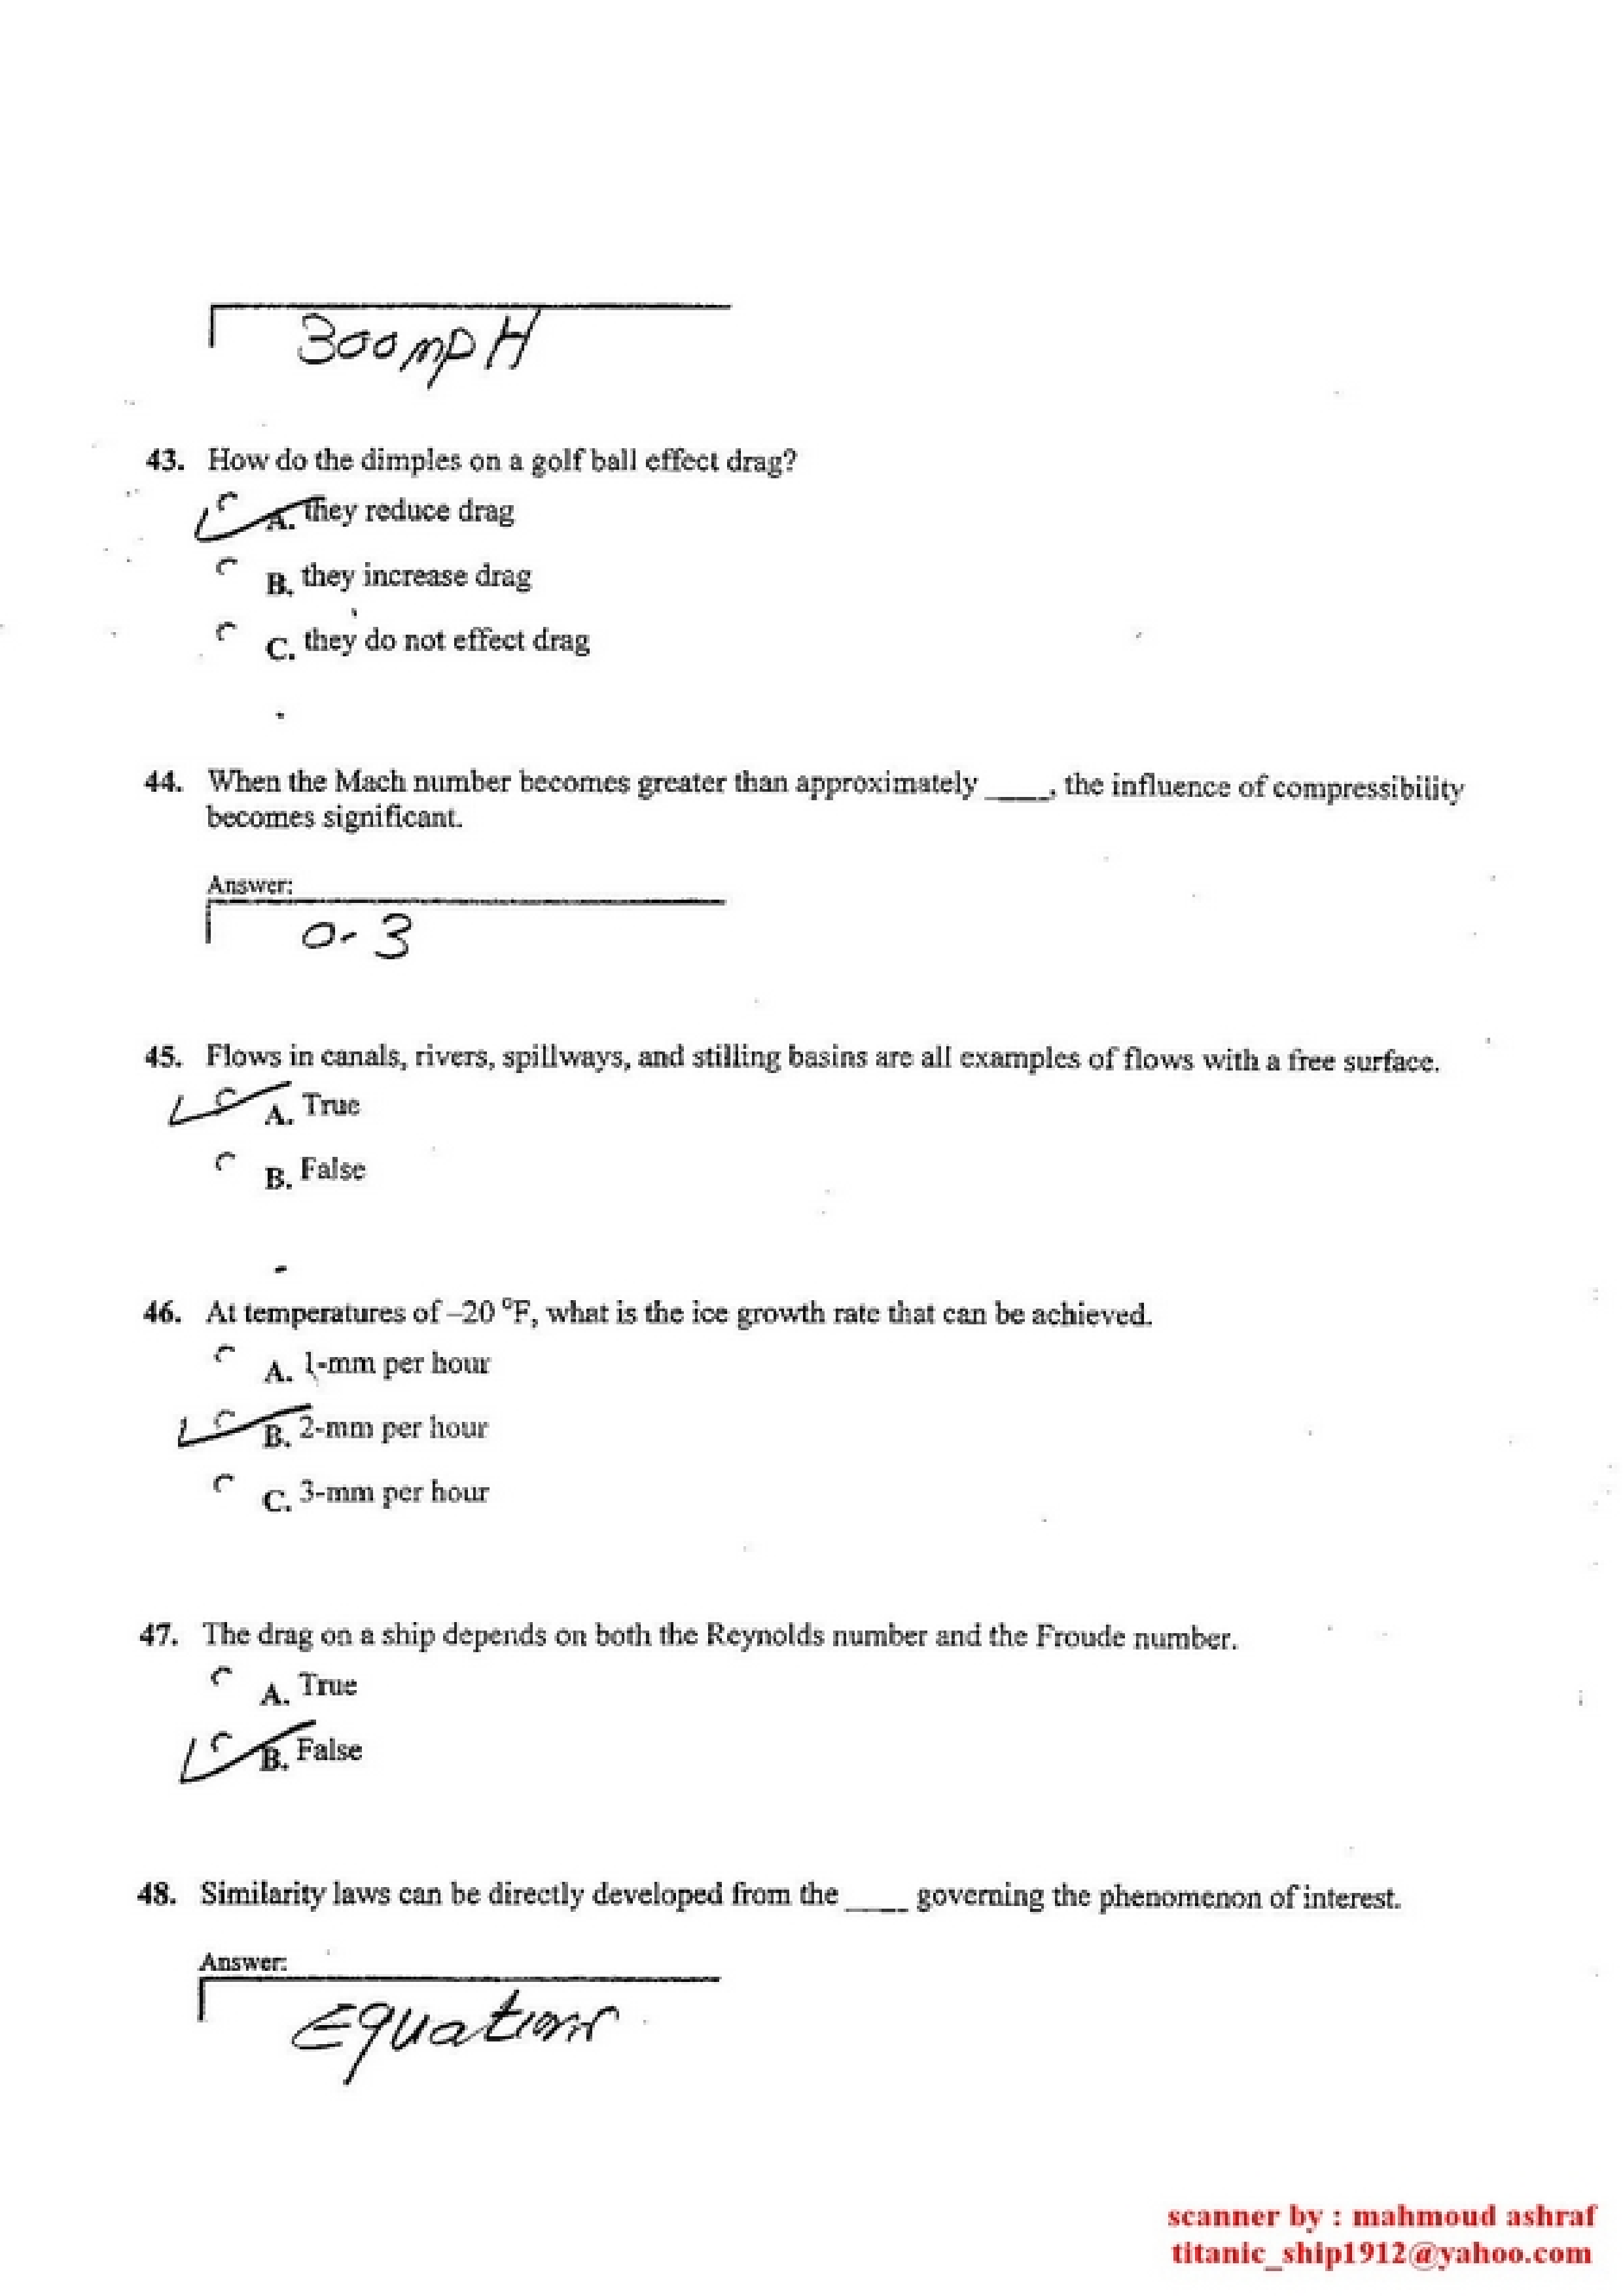 300mpH
43. How do the dimples on a golf ball effect drag?
A. they reduce drag
B. they increase drag
C. they do not effect drag
44. When the Mach number becomes greater than approximately ____, the influence of compressibility
becomes significant.
Answer:
0.3
45. Flows in canals, rivers, spillways, and stilling basins are all examples of flows with a free surface.
A. True
B. False
46. At temperatures of –20 °F, what is the ice growth rate that can be achieved.
A. 1-mm per hour
B. 2-mm per hour
C. 3-mm per hour
47. The drag on a ship depends on both the Reynolds number and the Froude number.
A. True
B. False
48. Similarity laws can be directly developed from the ____ governing the phenomenon of interest.
Answer:
Equations
scanner by : mahmoud ashraf
titanic_ship1912@yahoo.com